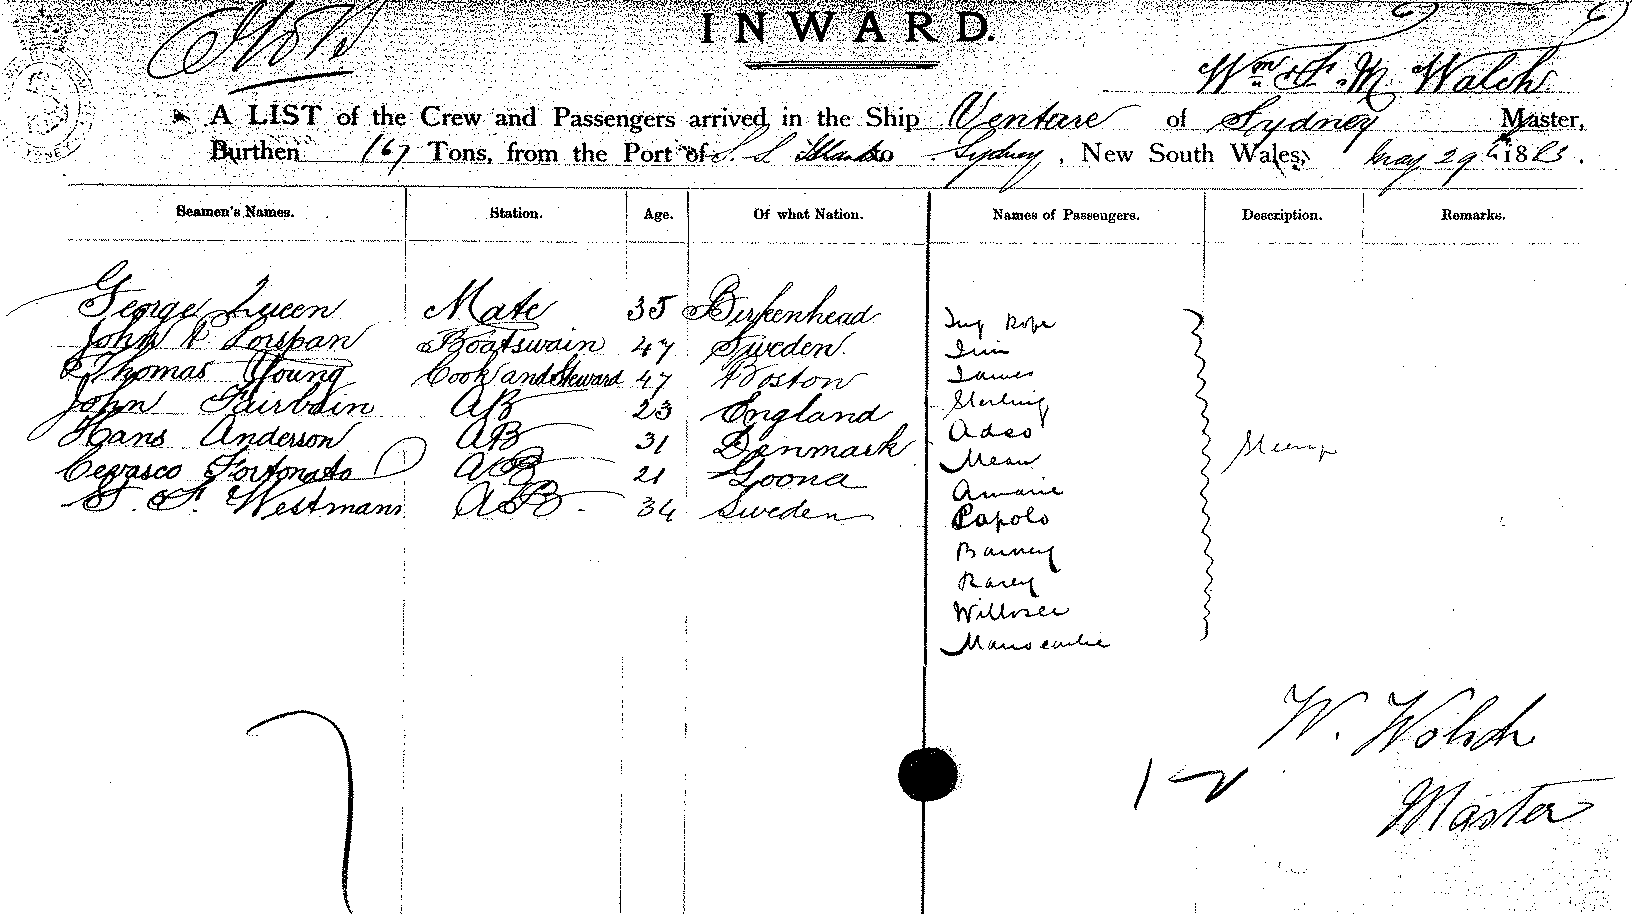 INWARD.
Wm. F. M. Walch
A LIST of the Crew and Passengers arrived in the Ship Venture of Sydney Master,
Burthen 167 Tons, from the Port of S. S. to Sydney, New South Wales, May 29th 1883.
Seamen's Names. Station. Age. Of what Nation. Names of Passengers. Description. Remarks.
George Queen Mate 35 Birkenhead
John P Boatswain 47 Sweden.
Thomas Young Cook and Steward 47 Boston
John Fairbain AB 23 England
Hans Anderson AB 31 Denmark
Cevasco Fortonato AB 21 Goona
S. F. Westmann AB. 34 Sweden
Tug Rope
Jim
James
Sterling
Adso
Mean
Amarie
Papolo
Barney
Rarey
Willosee
W. Walsh
12
Master